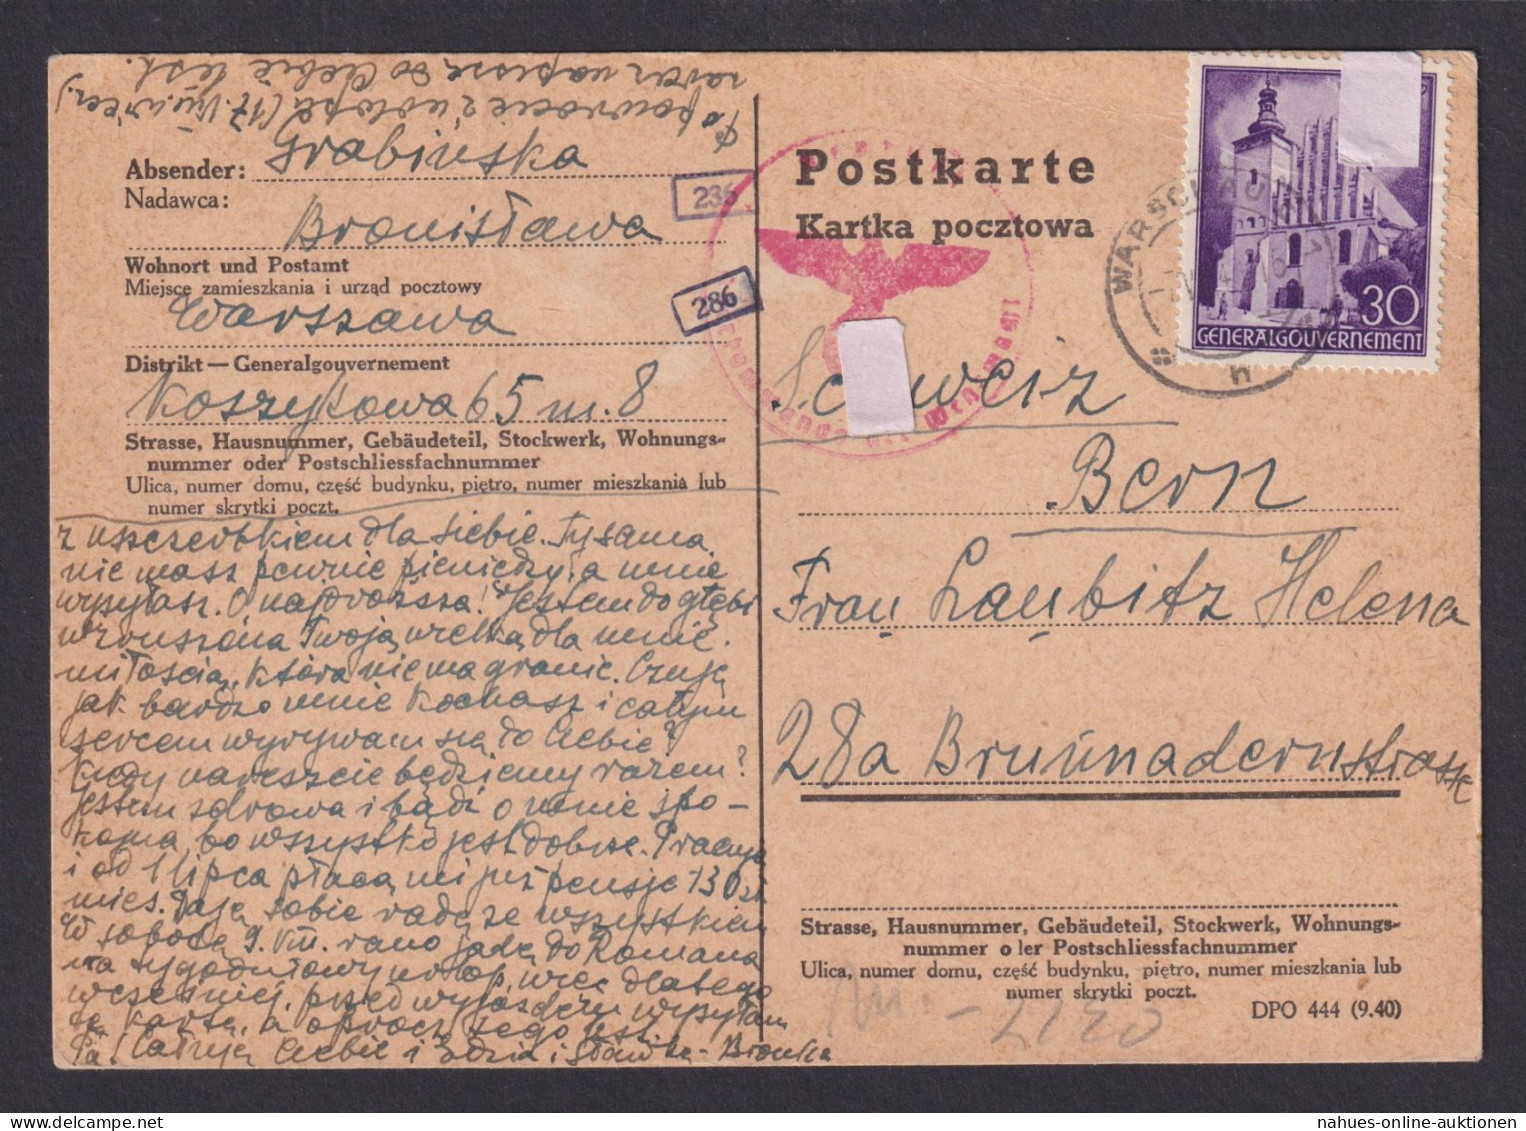 Po powrocie z urlopu (17. VIII. wiecz.)
zaraz napiszę do Ciebie list.
Absender: Grabińska
Nadawca:
Bronisława
Wohnort und Postamt
Miejsce zamieszkania i urząd pocztowy
Warszawa
Distrikt — Generalgouvernement
Koszykowa 65 m. 8
Strasse, Hausnummer, Gebäudeteil, Stockwerk, Wohnungs-
nummer oder Postschliessfachnummer
Ulica, numer domu, część budynku, piętro, numer mieszkania lub
numer skrytki poczt.
z uszczerbkiem dla Siebie. Ty sama
nie masz pewnie pieniędzy, a mnie
wysyłasz. O najdroższa! Jestem do głębi
wzruszona Twoją wielką dla mnie
miłością, która nie ma granic. Czuję
jak bardzo mnie kochasz i całym
sercem wyrywam się do Ciebie!
Kiedy nareszcie będziemy razem?
Jestem zdrowa i bądź o mnie spo-
kojna, bo wszystko jest dobrze. Pracuję
i od 1 lipca płacą mi już pensję 130 zł
mies. Daję sobie radę ze wszystkiem
W sobotę 9. VIII. rano jadę do Romana
na tygodniowy urlop, więc dlatego
wcześniej, przed wyjazdem wysyłam
tę kartę, a oprócz tego list.
Pa! Całuję Ciebie i Zdzia i Sławkę - Bronka
236
286
Postkarte
Kartka pocztowa
WARSCHAU
30
GENERALGOUVERNEMENT
Schweiz
Bern
Frau Laubitz Helena
28a Brunnadernstrasse
Strasse, Hausnummer, Gebäudeteil, Stockwerk, Wohnungs-
nummer oder Postschliessfachnummer
Ulica, numer domu, część budynku, piętro, numer mieszkania lub
numer skrytki poczt.
DPO 444 (9.40)
nahues-online-auktionen